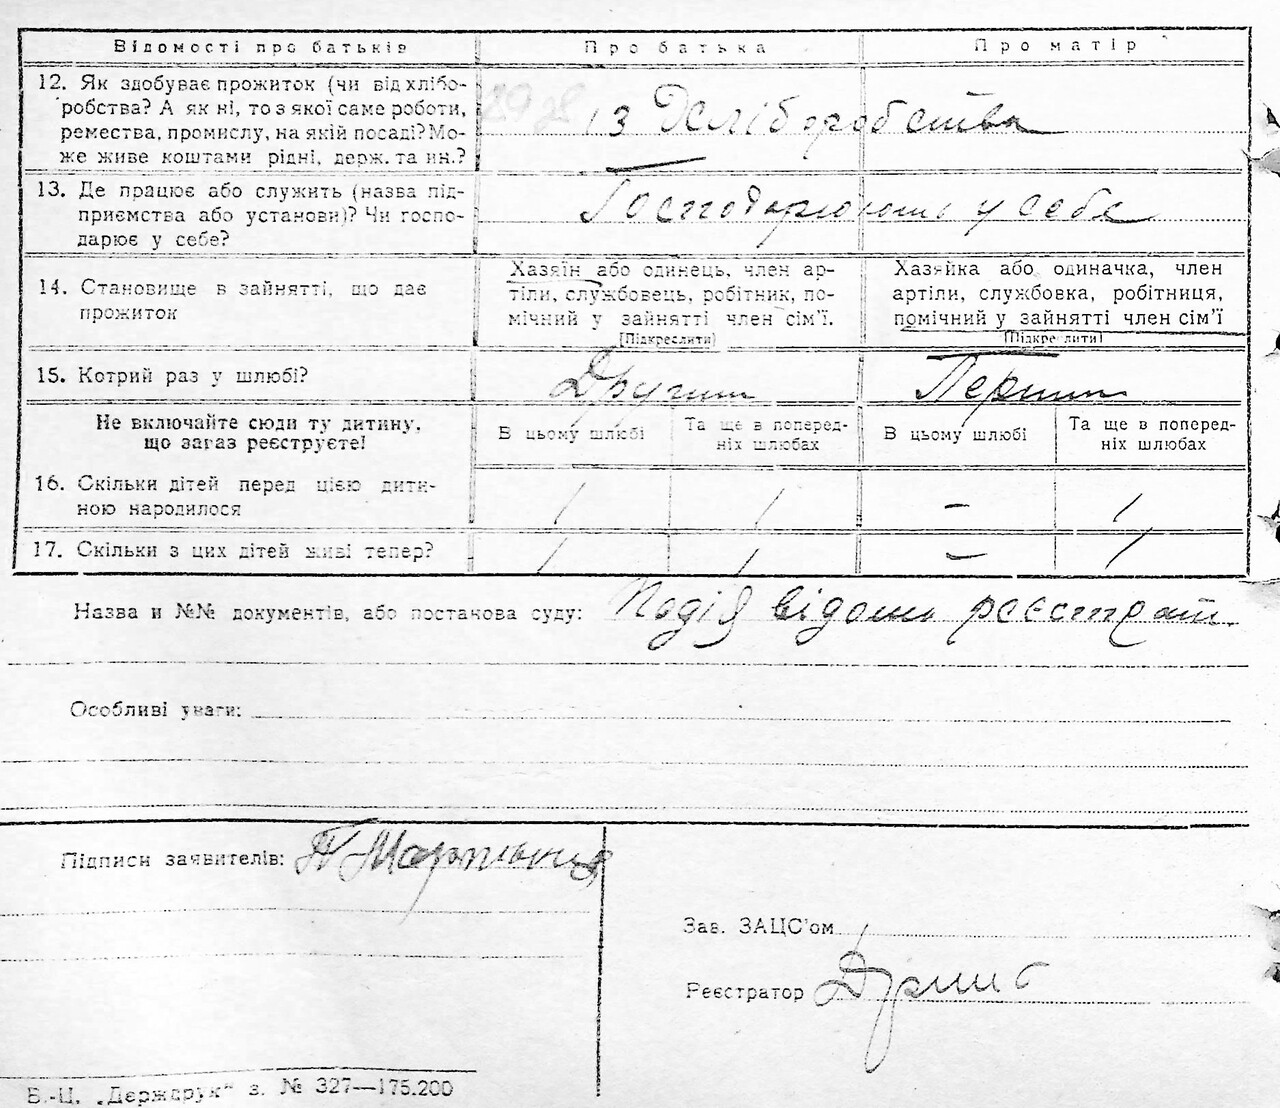 Відомості про батьків Про батька Про матір
12. Як здобуває прожиток (чи від хлібо-
робства? А як ні, то з якої саме роботи,
ремества, промислу, на якій посаді? Мо-
же живе коштами рідні, держ. та ин.?
із Хліборобства
13. Де працює або служить (назва під-
приємства або установи)? Чи госпо-
дарює у себе?
Господарюють у себе
14. Становище в зайнятті, що дає
прожиток
Хазяїн або одинець, член ар-
тіли, службовець, робітник, по-
мічний у зайнятті член сім'ї.
(Підкреслити)
Хазяйка або одиначка, член
артіли, службовка, робітниця,
помічний у зайнятті член сім'ї
(Підкреслити)
15. Котрий раз у шлюбі? Другий Перший
Не включайте сюди ту дитину,
що зараз реєструєте!
В цьому шлюбі
Та ще в поперед-
ніх шлюбах
В цьому шлюбі
Та ще в поперед-
ніх шлюбах
16. Скільки дітей перед цією дити-
ною народилося
1 1 – 1
17. Скільки з цих дітей живі тепер? 1 1 – 1
Назва и №№ документів, або постанова суду: Подія відома реєстрат.
Особливі уваги:
Підписи заявителів:
Зав. ЗАЦС'ом
Реєстратор
В.-Ц. „Держдрук“ з. № 327—175.200